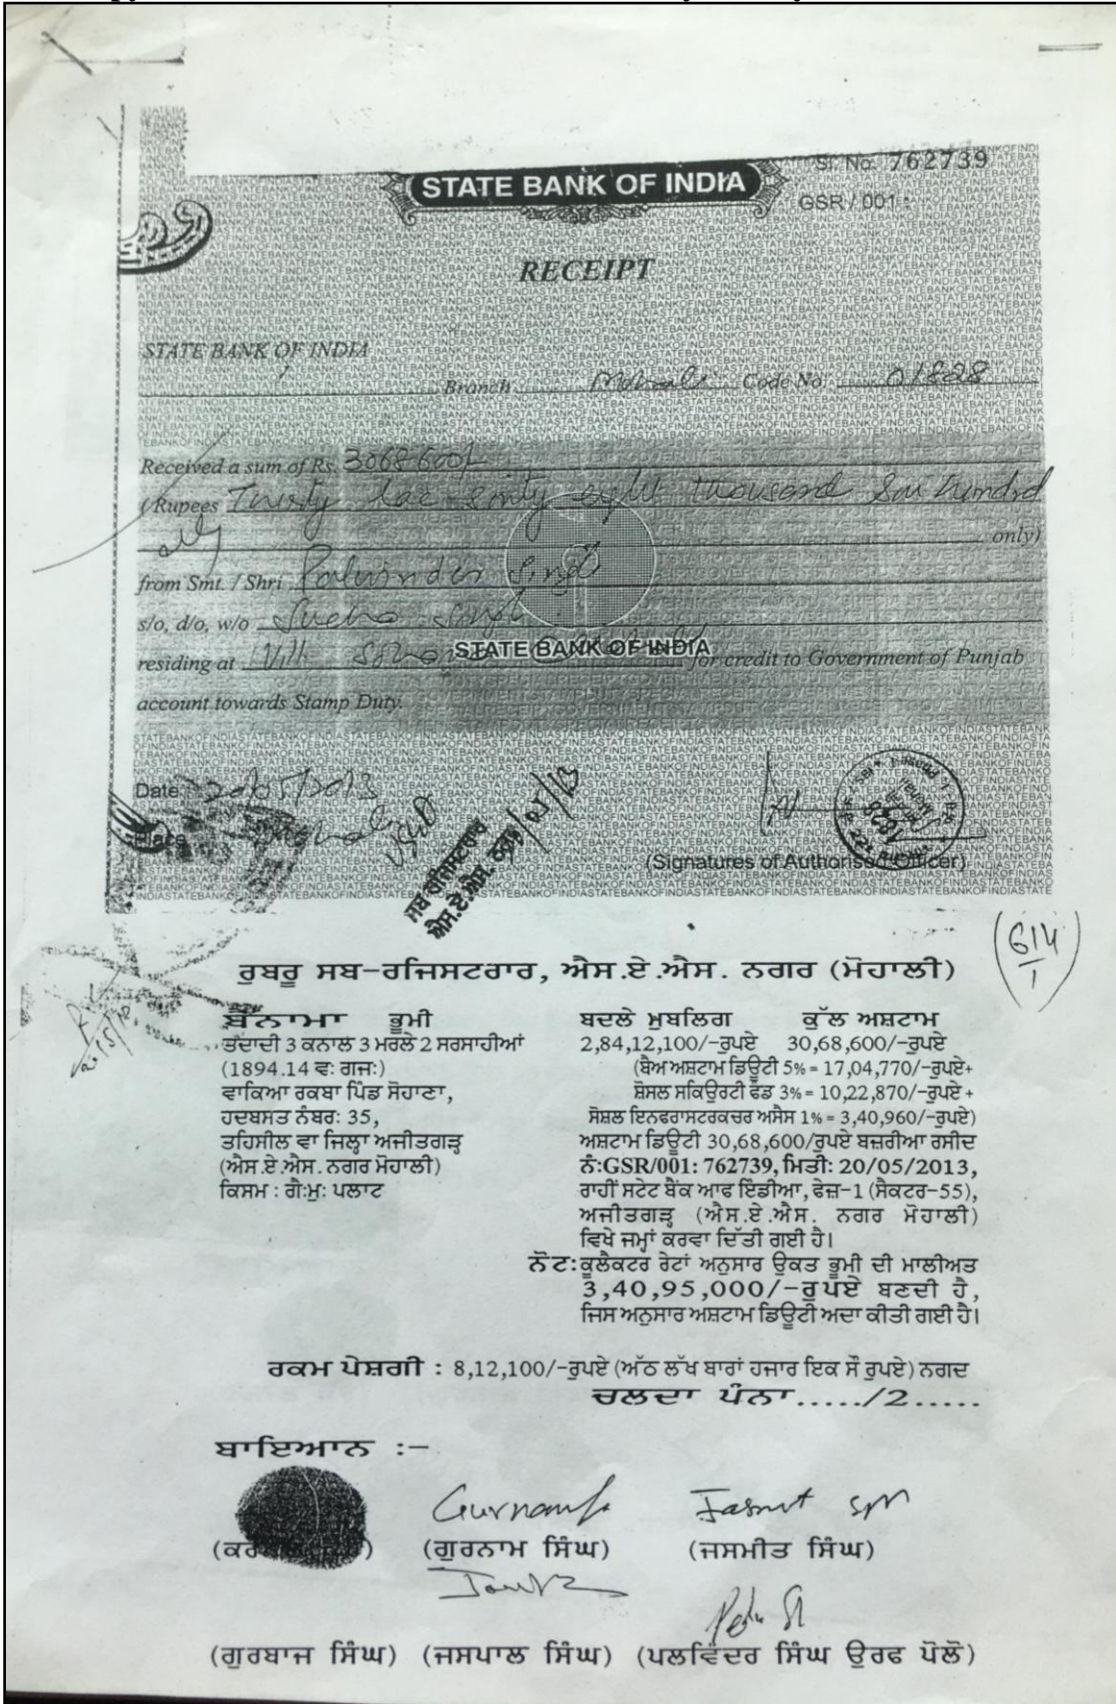 STATE BANK OF INDIA
Sl. No. 762739
GSR / 001 :
RECEIPT
STATE BANK OF INDIA
Branch Mohali Code No. 01828
Received a sum of Rs. 3068600/-
(Rupees Thirty lac sixty eight thousand Six hundred
only)
from Smt. / Shri Palwinder Singh
s/o, d/o, w/o Sucha Singh
residing at Vill. Sohana for credit to Government of Punjab
STATE BANK OF INDIA
account towards Stamp Duty.
Date 20/05/2013
Place Mohali
ਸਬ ਰਜਿਸਟਰਾਰ
ਐਸ.ਏ.ਐਸ. ਨਗਰ
(Signatures of Authorised Officer)
614
1
ਰੁਬਰੂ ਸਬ-ਰਜਿਸਟਰਾਰ, ਐਸ.ਏ.ਐਸ. ਨਗਰ (ਮੋਹਾਲੀ)
ਬੈਨਾਮਾ ਭੂਮੀ
ਤਦਾਦੀ 3 ਕਨਾਲ 3 ਮਰਲੇ 2 ਸਰਸਾਹੀਆਂ
(1894.14 ਵ: ਗਜ:)
ਵਾਕਿਆ ਰਕਬਾ ਪਿੰਡ ਸੋਹਾਣਾ,
ਹਦਬਸਤ ਨੰਬਰ: 35,
ਤਹਿਸੀਲ ਵਾ ਜਿਲ੍ਹਾ ਅਜੀਤਗੜ੍ਹ
(ਐਸ.ਏ.ਐਸ. ਨਗਰ ਮੋਹਾਲੀ)
ਕਿਸਮ : ਗੈ:ਮੁ: ਪਲਾਟ
ਬਦਲੇ ਮੁਬਲਿਗ ਕੁੱਲ ਅਸ਼ਟਾਮ
2,84,12,100/-ਰੁਪਏ 30,68,600/-ਰੁਪਏ
(ਬੈਅ ਅਸ਼ਟਾਮ ਡਿਊਟੀ 5% = 17,04,770/-ਰੁਪਏ+
ਸ਼ੋਸਲ ਸਕਿਉਰਟੀ ਫੰਡ 3% = 10,22,870/-ਰੁਪਏ +
ਸੋਸ਼ਲ ਇਨਫਰਾਸਟਰਕਚਰ ਅਸੈਸ 1% = 3,40,960/-ਰੁਪਏ)
ਅਸ਼ਟਾਮ ਡਿਊਟੀ 30,68,600/ਰੁਪਏ ਬਜ਼ਰੀਆ ਰਸੀਦ
ਨੰ:GSR/001: 762739, ਮਿਤੀ: 20/05/2013,
ਰਾਹੀਂ ਸਟੇਟ ਬੈਂਕ ਆਫ ਇੰਡੀਆ, ਫੇਜ਼-1 (ਸੈਕਟਰ-55),
ਅਜੀਤਗੜ੍ਹ (ਐਸ.ਏ.ਐਸ. ਨਗਰ ਮੋਹਾਲੀ)
ਵਿਖੇ ਜਮ੍ਹਾਂ ਕਰਵਾ ਦਿੱਤੀ ਗਈ ਹੈ।
ਨੋਟ:ਕੂਲੈਕਟਰ ਰੇਟਾਂ ਅਨੁਸਾਰ ਉਕਤ ਭੂਮੀ ਦੀ ਮਾਲੀਅਤ
3,40,95,000/-ਰੁਪਏ ਬਣਦੀ ਹੈ,
ਜਿਸ ਅਨੁਸਾਰ ਅਸ਼ਟਾਮ ਡਿਊਟੀ ਅਦਾ ਕੀਤੀ ਗਈ ਹੈ।
ਰਕਮ ਪੇਸ਼ਗੀ : 8,12,100/-ਰੁਪਏ (ਅੱਠ ਲੱਖ ਬਾਰਾਂ ਹਜਾਰ ਇਕ ਸੌ ਰੁਪਏ) ਨਗਦ
ਚਲਦਾ ਪੰਨਾ...../2.....
ਬਾਇਆਨ :-
Gurnam Jasmit
(ਗੁਰਨਾਮ ਸਿੰਘ) (ਜਸਮੀਤ ਸਿੰਘ)
(ਗੁਰਬਾਜ ਸਿੰਘ) (ਜਸਪਾਲ ਸਿੰਘ) (ਪਲਵਿੰਦਰ ਸਿੰਘ ਉਰਫ ਪੋਲੋ)